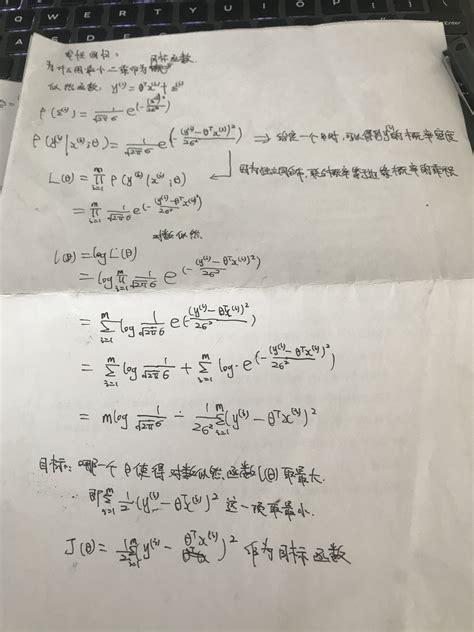 线性回归:
为什么用最小二乘作为目标函数
似然函数: y⁽ⁱ⁾ = θᵀx⁽ⁱ⁾ + ε⁽ⁱ⁾
P(ε⁽ⁱ⁾) = 1/(√2π σ) e(-(ε⁽ⁱ⁾)²/2σ²)
P(y⁽ⁱ⁾|x⁽ⁱ⁾;θ) = 1/(√2π σ) e(-(y⁽ⁱ⁾-θᵀx⁽ⁱ⁾)²/2σ²) ⇒ 给定一个θ时,可以得到y⁽ⁱ⁾的概率密度
L(θ) = ∏ᵢ₌₁ᵐ P(y⁽ⁱ⁾|x⁽ⁱ⁾;θ) 因为独立同分布,联合概率等于边缘概率的乘积
= ∏ᵢ₌₁ᵐ 1/(√2π σ) e(-(y⁽ⁱ⁾-θᵀx⁽ⁱ⁾)²/2σ²)
对数似然
l(θ) = log L(θ)
= log ∏ᵢ₌₁ᵐ 1/(√2π σ) e(-(y⁽ⁱ⁾-θᵀx⁽ⁱ⁾)²/2σ²)
= ∑ᵢ₌₁ᵐ log 1/(√2π σ) e(-(y⁽ⁱ⁾-θᵀx⁽ⁱ⁾)²/2σ²)
= ∑ᵢ₌₁ᵐ log 1/(√2π σ) + ∑ᵢ₌₁ᵐ log·e(-(y⁽ⁱ⁾-θᵀx⁽ⁱ⁾)²/2σ²)
= m log 1/(√2π σ) - 1/2σ² ∑ᵢ₌₁ᵐ (y⁽ⁱ⁾-θᵀx⁽ⁱ⁾)²
目标: 哪一个θ使得对数似然函数l(θ)取最大.
即 ∑ᵢ₌₁ᵐ 1/2 (y⁽ⁱ⁾-θᵀx⁽ⁱ⁾)² 这一项取最小.
J(θ) = 1/2 ∑ᵢ₌₁ᵐ (y⁽ⁱ⁾ - θᵀx⁽ⁱ⁾)² 作为目标函数